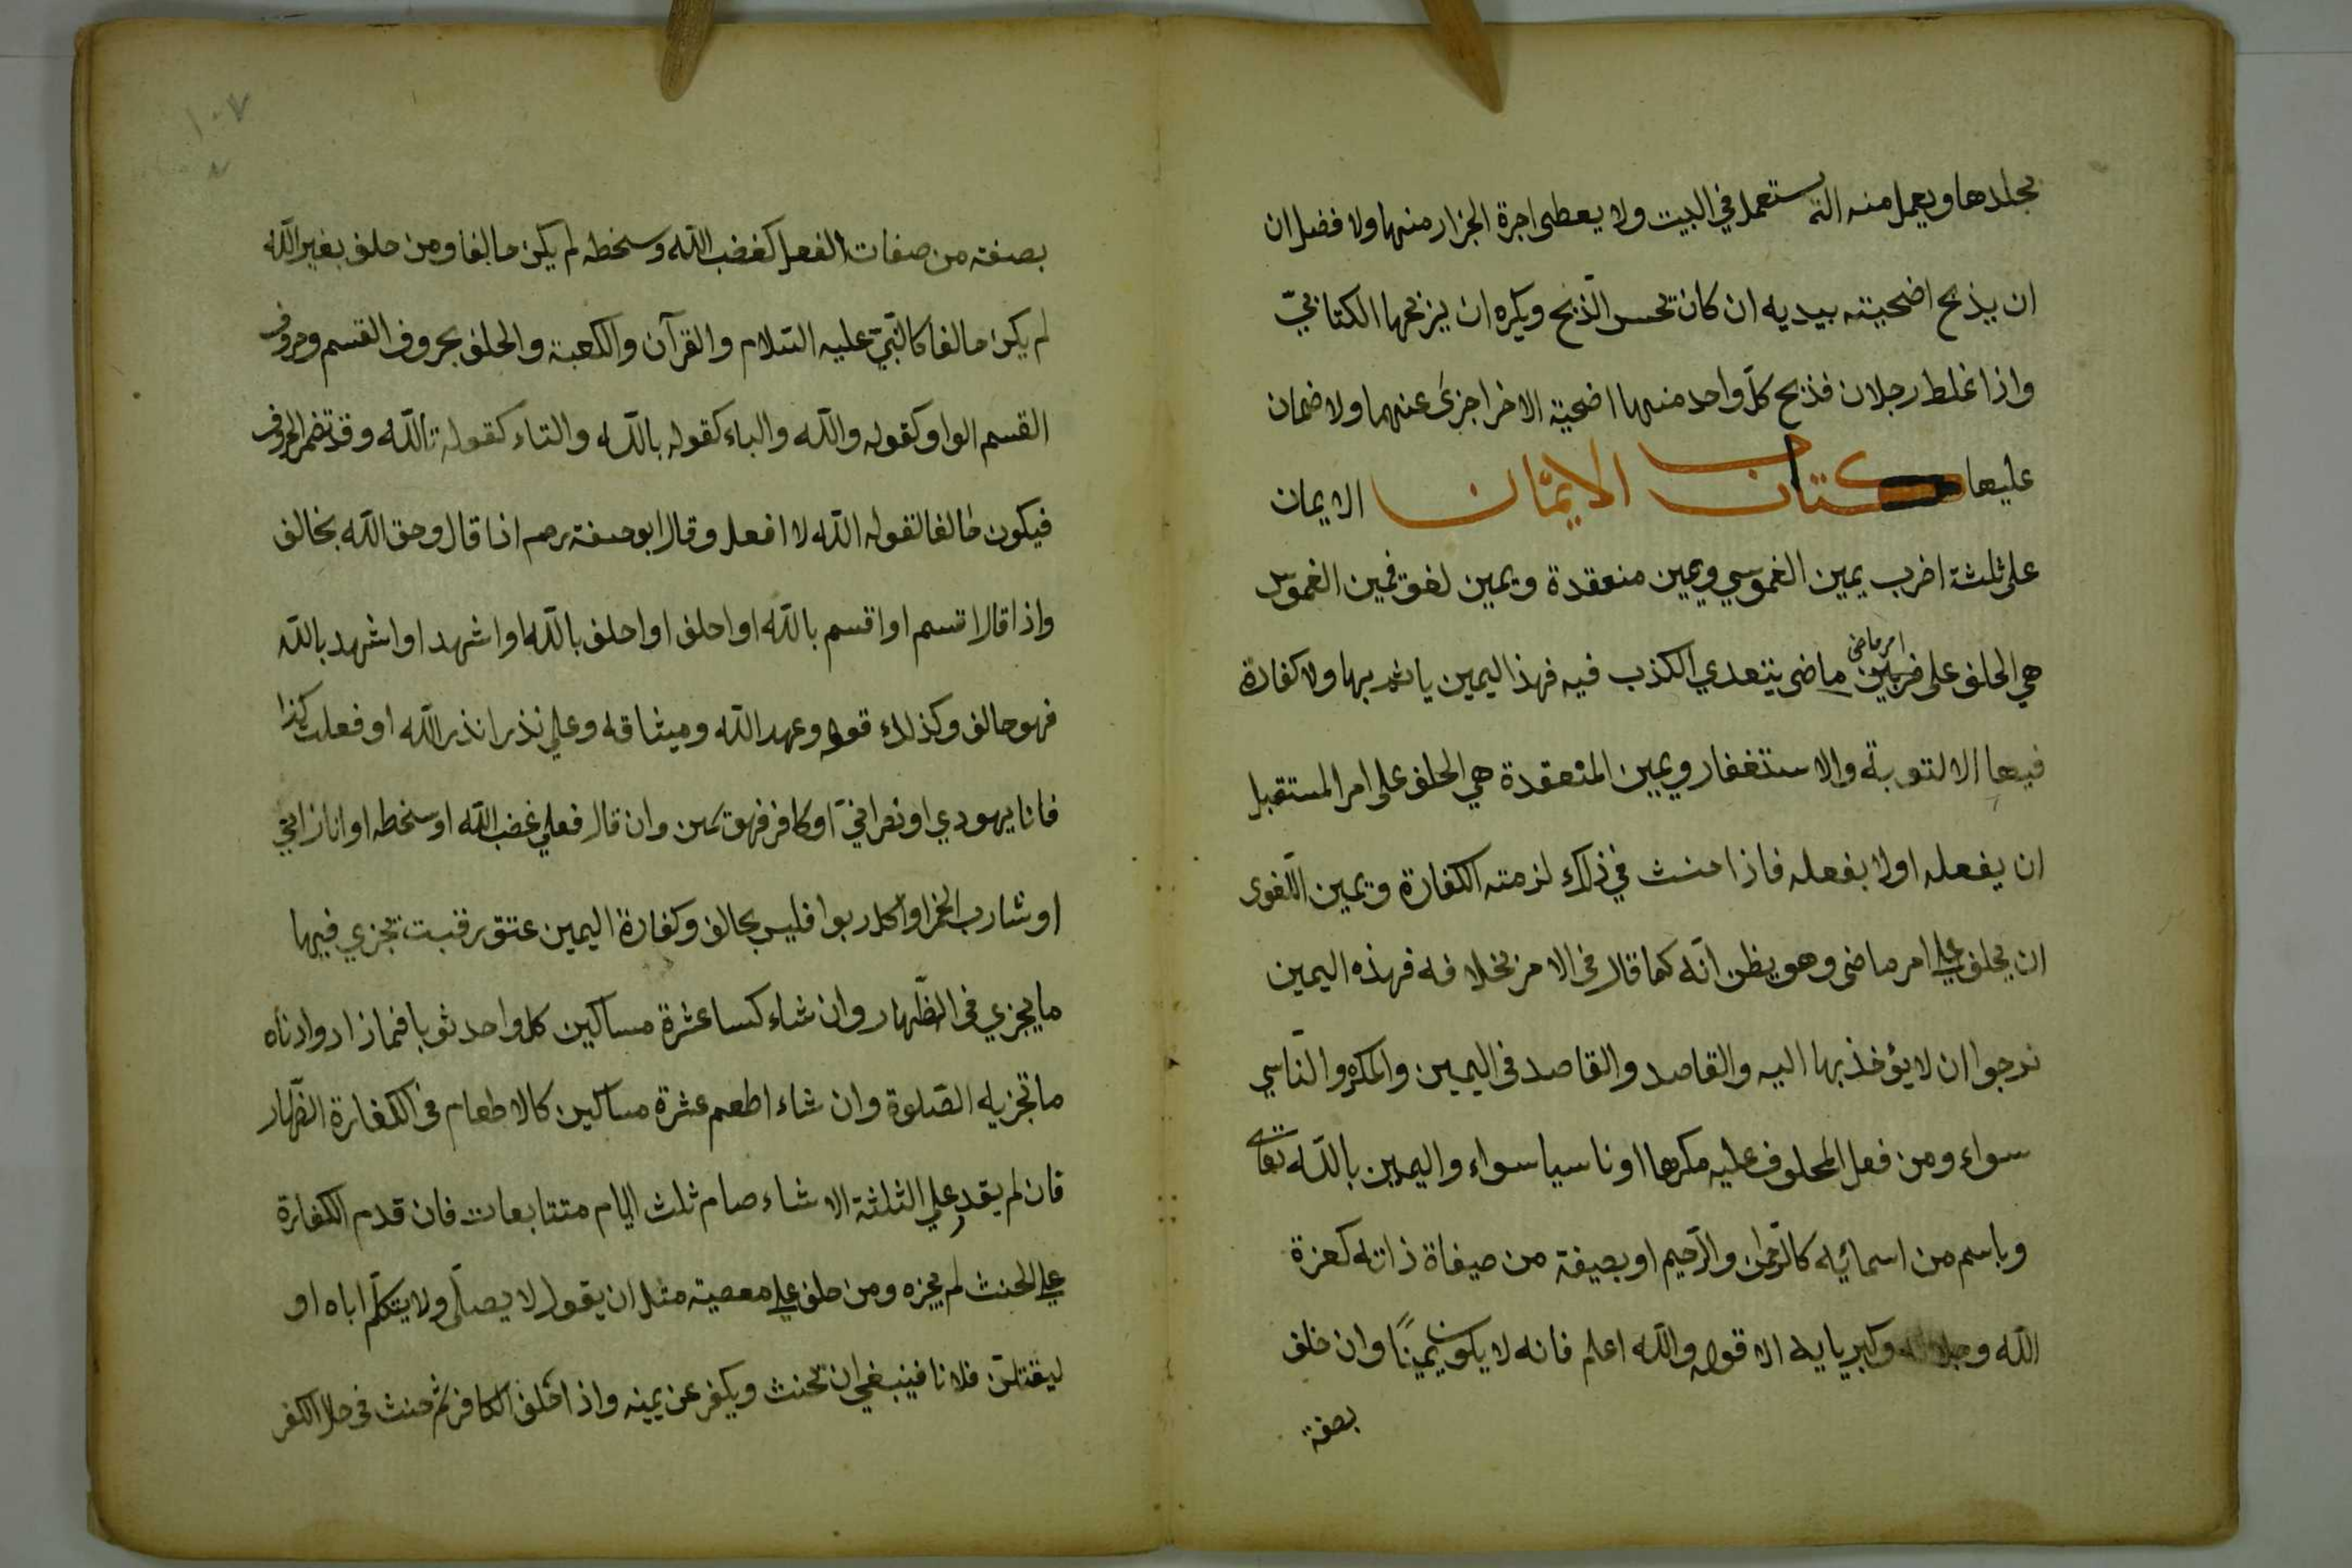 بجلدها ويعمل منه الة يستعمل في البيت ولا يعطى اجرة الجزار منها ولا فضل ان
ان يذبح اضحيته بيديه ان كان يحسن الذبح ويكره ان يذبحها الكتابيّ
واذا غلط رجلان فذبح كلّ واحد منهما اضحية الاخر اجزئ عنهما ولا ضمان
عليها كتاب الايمان الايمان
على ثلثة اضرب يمين الغموسي ويمين منعقدة ويمين لغو فيمين الغموس
امر ماضى
هي الحلف على ماضى يتعدي الكذب فيه فهذا اليمين ياثم بها ولا كفارة
فيها الا لتوبة والاستغفار ويمين المنعقدة هي الحلف على امر المستقبل
ان يفعله اولا يفعله فاذا حنث في ذلك لزمته الكفارة ويمين اللّغوى
ان يحلف على امر ماضى وهو يظن انّه كما قال فى الامر بخلافه فهذه اليمين
نرجوا ان لا يؤخذ بها اليه والقاصد والقاصد فى اليمين والمكره والنّاسي
سواء ومن فعل المحلوف عليه مكرها او ناسيا سواء واليمين بالله تعالى
وباسم من اسمائيه كالرّحمن والرّحيم او بصيفة من صيفاة ذاته كعزة
الله وجلاله وكبريايه الا قوله والله اعلم فانه لا يكون يمينًا وان خلف
بصفة
١٠٧
بصفة من صفات الفعل كغضب الله وسخطه لم يكن حالفا ومن حلف بغير الله
لم يكن حالفا كالنّبيّ عليه السّلام والقرآن والكعبة والحلف بحروف القسم وحروف
القسم الواو كقوله والله والباء كقوله بالله والتاء كقوله تالله وقد تضمر الحروف
فيكون حالفا لقوله الله لا افعل وقال ابوحنفة رحم اذا قال وحق الله بخالف
واذا قال اقسم او اقسم بالله او احلف او احلف بالله او اشهد او اشهد بالله
فهو حالف وكذلك قوله وعهد الله وميثاقه وعلي نذر انذر الله او فعلت كذا
فانا يهودي او نصرانيّ او كافر فهو يمين وان قال فعلي غضب الله او سخطه او انا زاني
او شارب الخمر او اكل ربوا فليس بحالف وكفارة اليمين عتق رقبت تجزي فيها
ما يجزي فى الظّهار وان شاء كسا عشرة مساكين كل واحد ثوبا فما زاد وادناه
ما تجزيه الصّلوة وان شاء اطعم عشرة مساكين كالاطعام فى الكفارة الظّهار
فان لم يقدر علي الثلثة الاشاء صام ثلث ايام متتابعات فان قدم الكفارة
على الحنث لم يجزه ومن حلف على معصية مثل ان يقول لا يصلّى ولا يتكلّم اباه او
ليقتلنّ فلانا فينبغي ان تحنث ويكفر عن يمينه واذا خلف الكافر ثم حنث فى حلا الكفر